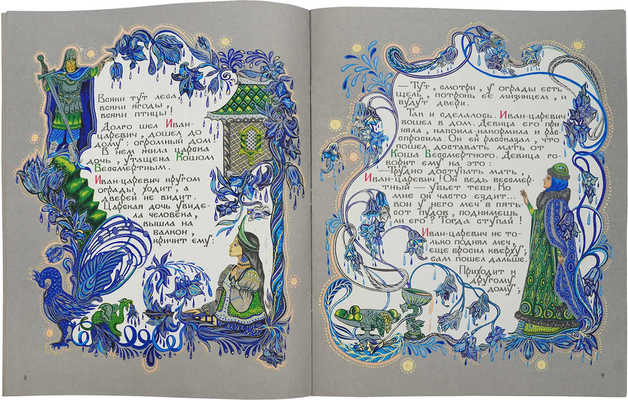 Всяки тут леса,
всяки ягоды,
всяки птицы!
Долго шел Иван-
царевич, дошел до
дому: огромный дом!
В нем жила царска
дочь, утащена Кошом
Бессмертным.
Иван-царевич кругом
ограды ходит, а
дверей не видит.
Царская дочь увиде-
ла человека,
вышла на
балкон,
кричит ему:
— Тут, смотри, у ограды есть
щель, потронь ее мизинцем, и
будут двери.
Так и сделалось. Иван-царевич
вошел в дом. Девица его при-
няла, напоила-накормила и рас-
спросила. Он ей рассказал, что
пошел доставать мать от
Коша Бессмертного. Девица го-
ворит ему на это:
— Трудно доступать мать,
Иван-царевич! Он ведь бессмер-
тный — убьет тебя. Ко
мне он часто ездит...
вон у него меч в пять-
сот пудов, поднимешь
ли его? Тогда ступай!
Иван-царевич не то-
лько поднял меч,
еще бросил кверху;
сам пошел дальше.
Приходит к
другому
дому;